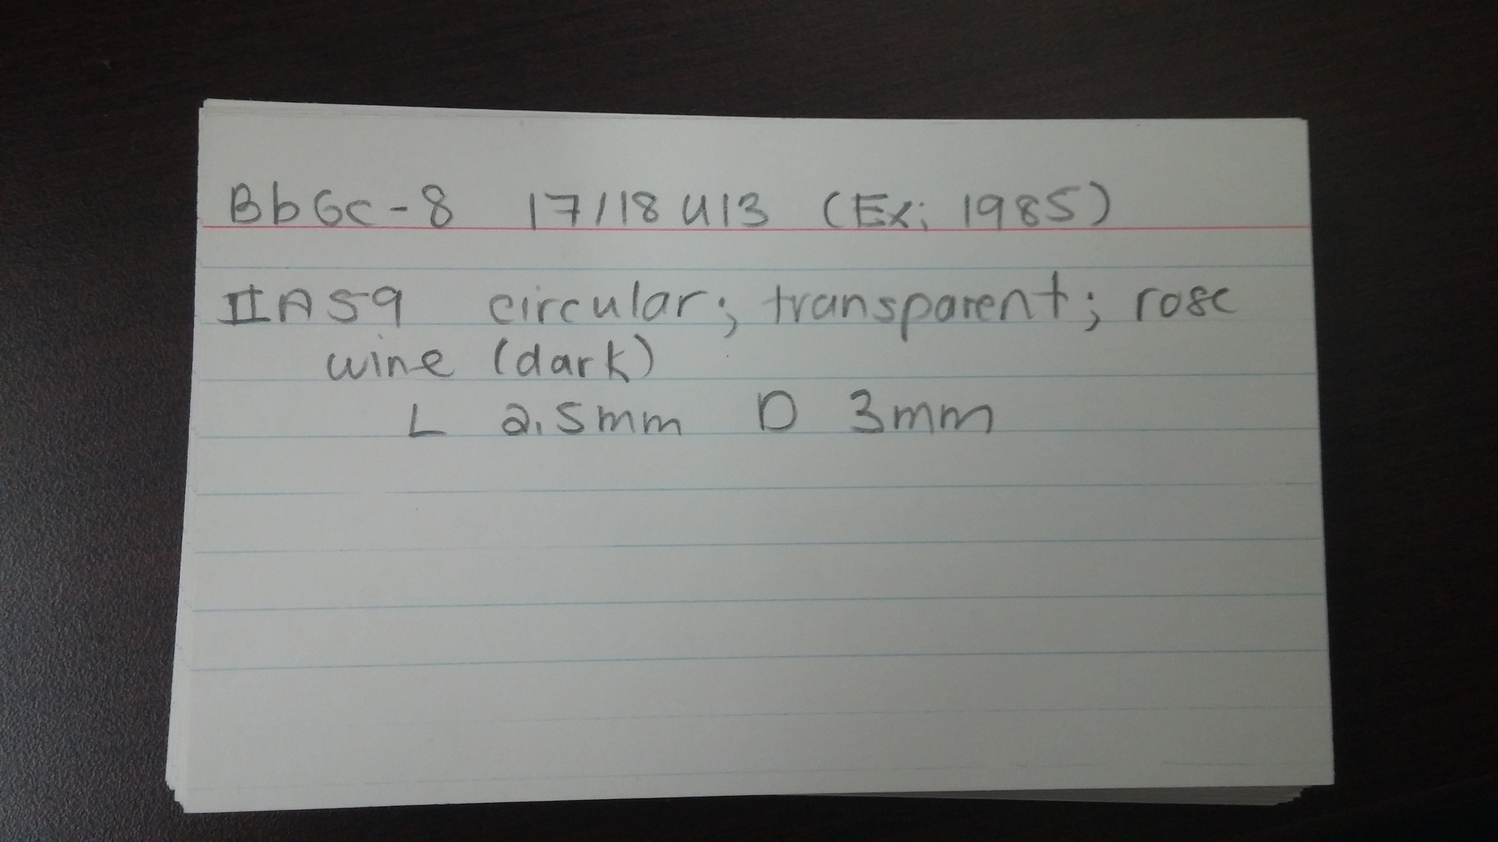 BbGc-8 17/18U13 (Ex; 1985)
IIA59 circular; transparent; rose
wine (dark)
L 2.5mm D 3mm